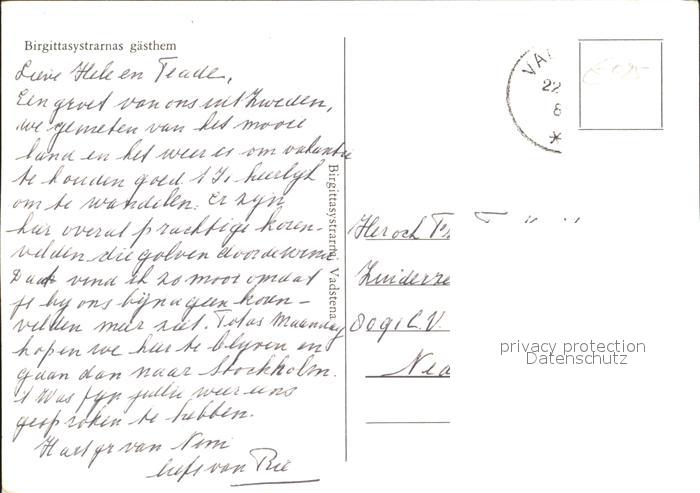 Birgittasystrarnas gästhem
Lieve Hele en Teade,
Een groet van ons uit Zweden,
we genieten van het mooie
land en het weer is om vakantie
te houden goed. 't Is heerlijk
om te wandelen. Er zijn
hier overal prachtige koren-
velden die golven door de wind
Dat vind ik zo mooi omdat
je by ons bijna geen koren-
velden meer ziet. Tot as Maandag
hopen we hier te blyven en
gaan dan naar Stockholm.
't Was fyn jullie weer eens
gesproken te hebben.
Hart gr van Nini
liefs van Rie
Birgittasystrarna, Vadstena
VA
22
8
*
Her och
Zuiderze
8091 L.V.
Ned
privacy protection
Datenschutz